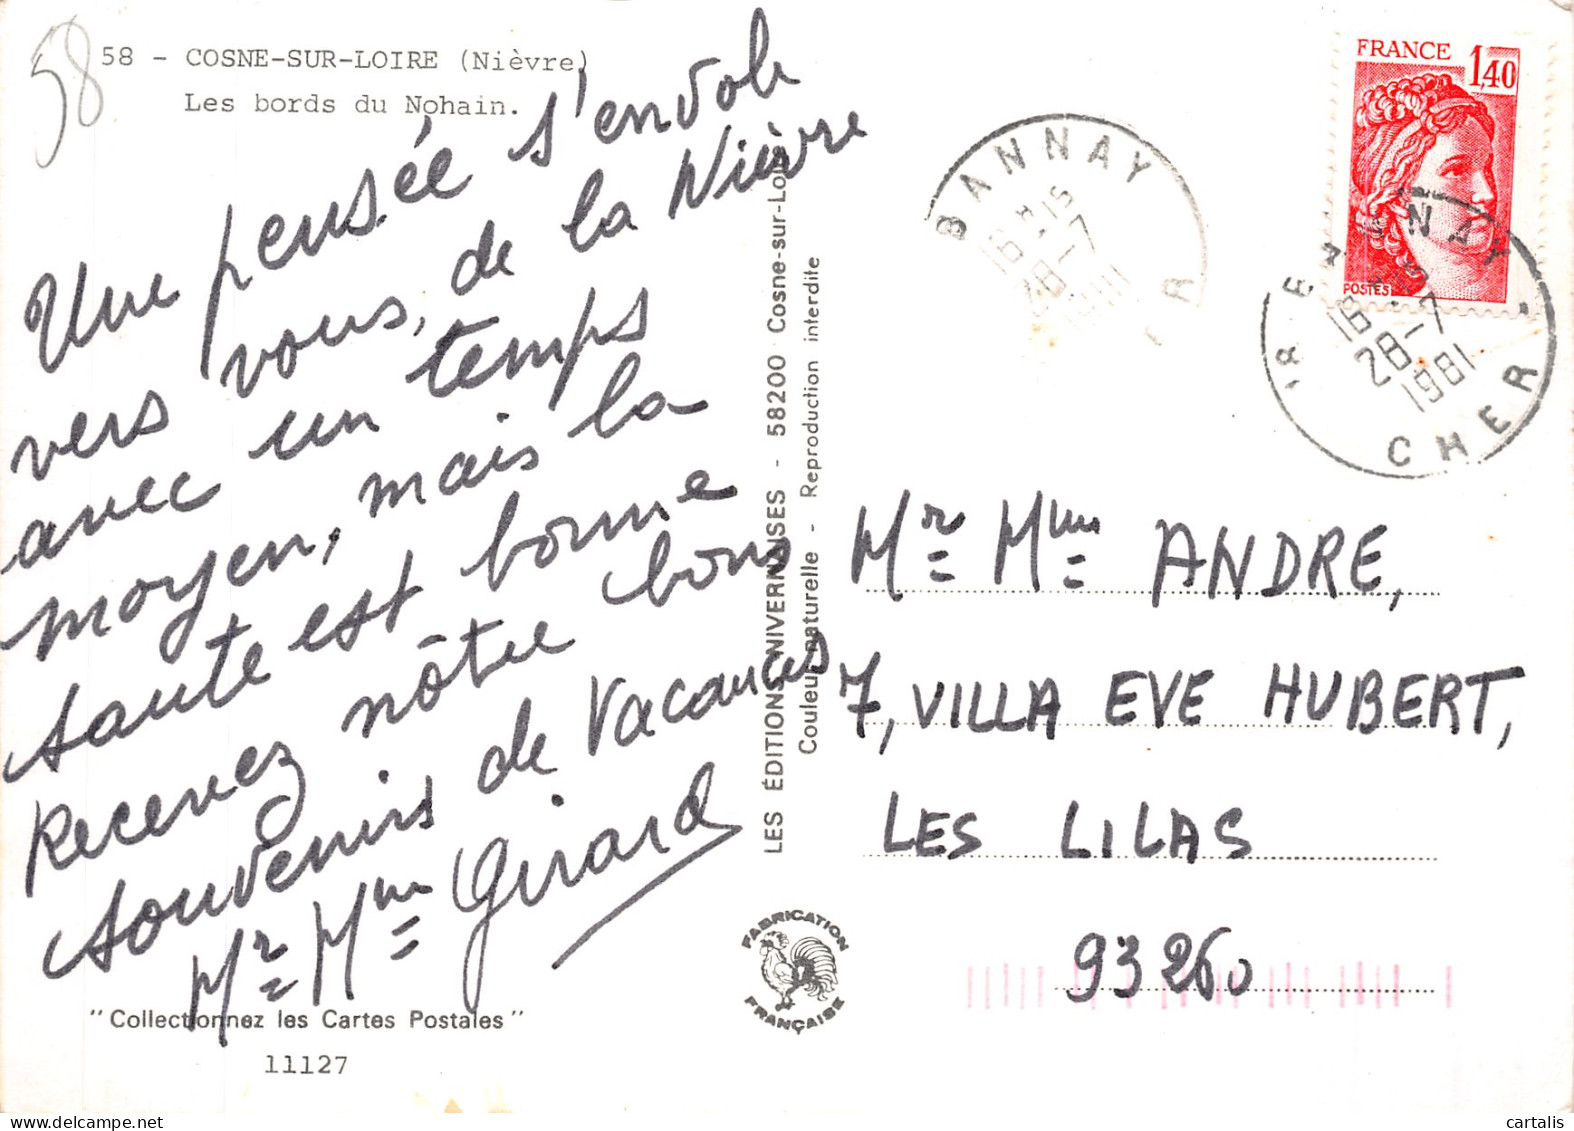 58
58 - COSNE-SUR-LOIRE (Nièvre)
Les bords du Nohain.
Une pensée s'envole
vers vous, de la Nièvre
avec un temps
moyen, mais la
santé est bonne
Recevez nôtre bons
souvenirs de Vacances
Mr Mme Girard
"Collectionnez les Cartes Postales"
11127
LES ÉDITIONS NIVERNAISES - 58200 Cosne-sur-Loire
Couleur naturelle - Reproduction interdite
FABRICATION
FRANÇAISE
BANNAY
16 H 15
28-7
1981
FRANCE
1,40
POSTES
18 BANNAY
16 H 15
28-7
1981
CHER
Mr Mme ANDRE,
7, VILLA EVE HUBERT,
LES LILAS
93260
cartalis
www.delcampe.net